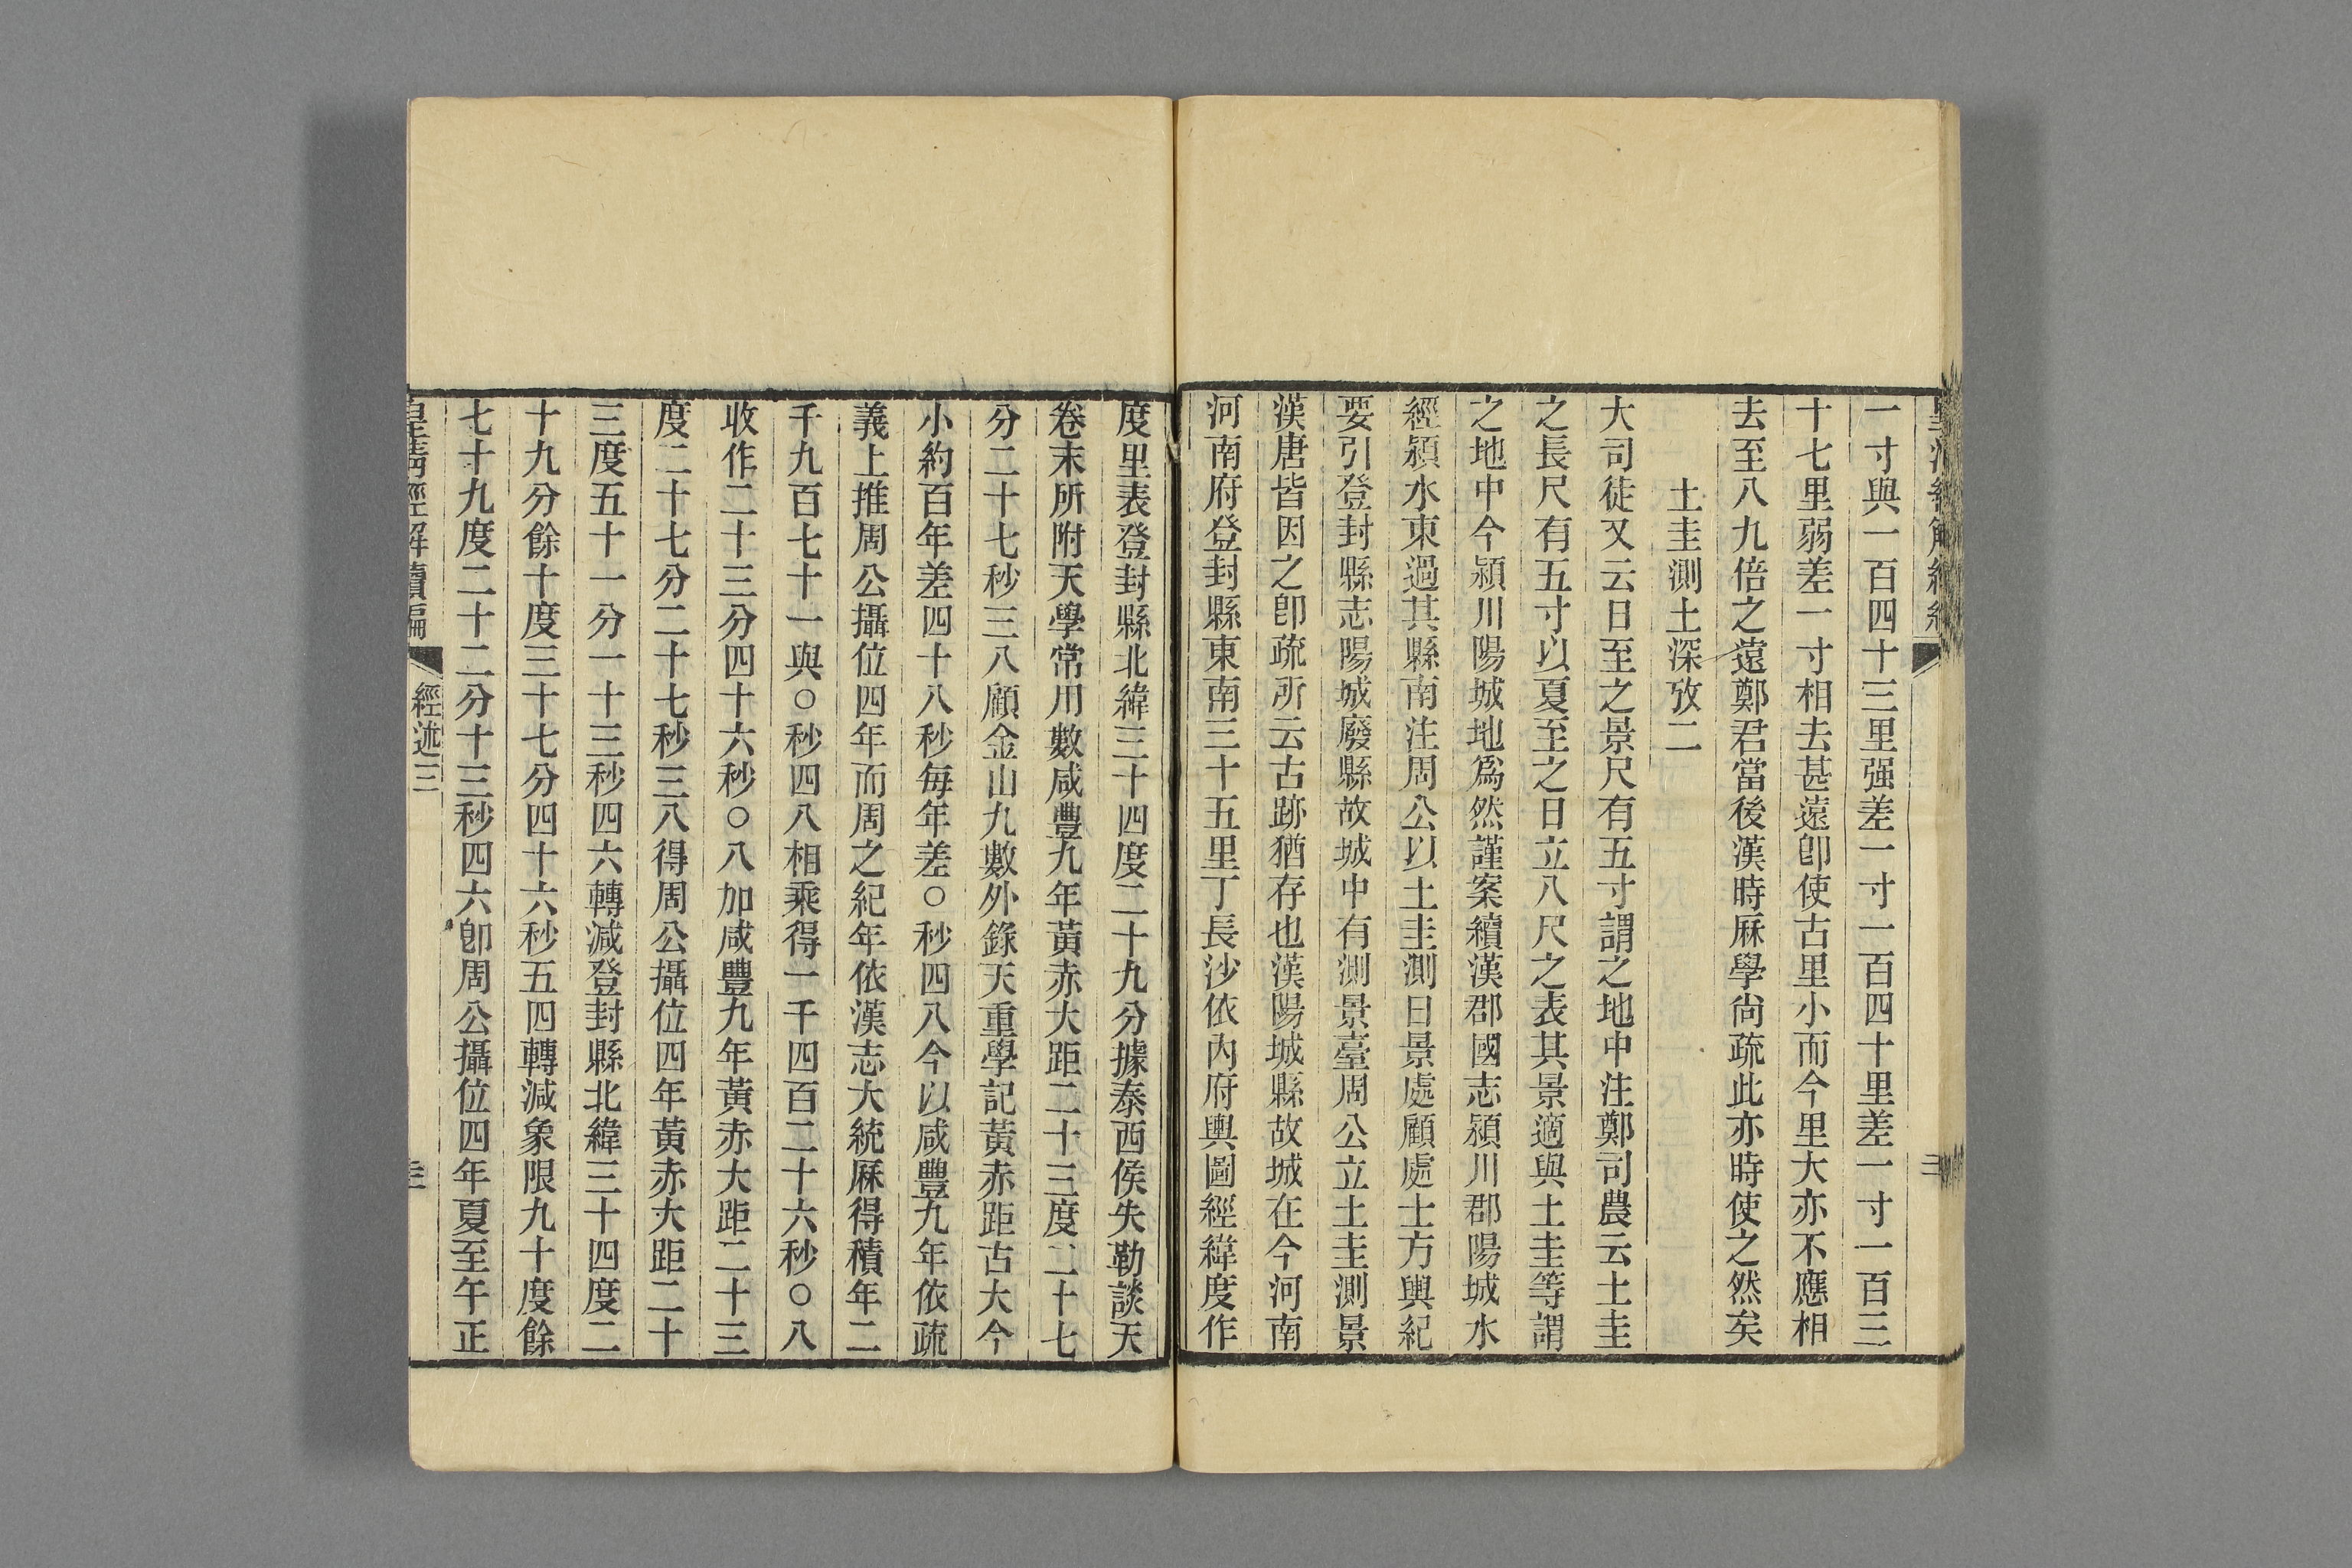 一寸與一百四十三里强差一寸一百四十里差一寸一百三
十七里弱差一寸相去甚遠卽使古里小而今里大亦不應相
去至八九倍之遠鄭君當後漢時厤學尙疏此亦時使之然矣
土圭測土深攷二
大司徒又云日至之景尺有五寸謂之地中注鄭司農云土圭
之長尺有五寸以夏至之日立八尺之表其景適與土圭等謂
之地中今潁川陽城地爲然謹案續漢郡國志潁川郡陽城水
經潁水東過其縣南注周公以土圭測日景處顧處士方輿紀
要引登封縣志陽城廢縣故城中有測景臺周公立土圭測景
漢唐皆因之卽疏所云古跡猶存也漢陽城縣故城在今河南
河南府登封縣東南三十五里丁長沙依內府輿圖經緯度作
度里表登封縣北緯三十四度二十九分據泰西侯失勒談天
卷末所附天學常用數咸豐九年黃赤大距二十三度二十七
分二十七秒三八顧金山九數外錄天重學記黃赤距古大今
小約百年差四十八秒每年差〇秒四八今以咸豐九年依疏
義上推周公攝位四年而周之紀年依漢志大統厤得積年二
千九百七十一與〇秒四八相乘得一千四百二十六秒〇八
收作二十三分四十六秒〇八加咸豐九年黃赤大距二十三
度二十七分二十七秒三八得周公攝位四年黃赤大距二十
三度五十一分一十三秒四六轉減登封縣北緯三十四度二
十九分餘十度三十七分四十六秒五四轉減象限九十度餘
七十九度二十二分十三秒四六卽周公攝位四年夏至午正
皇淸經解續編 經述三